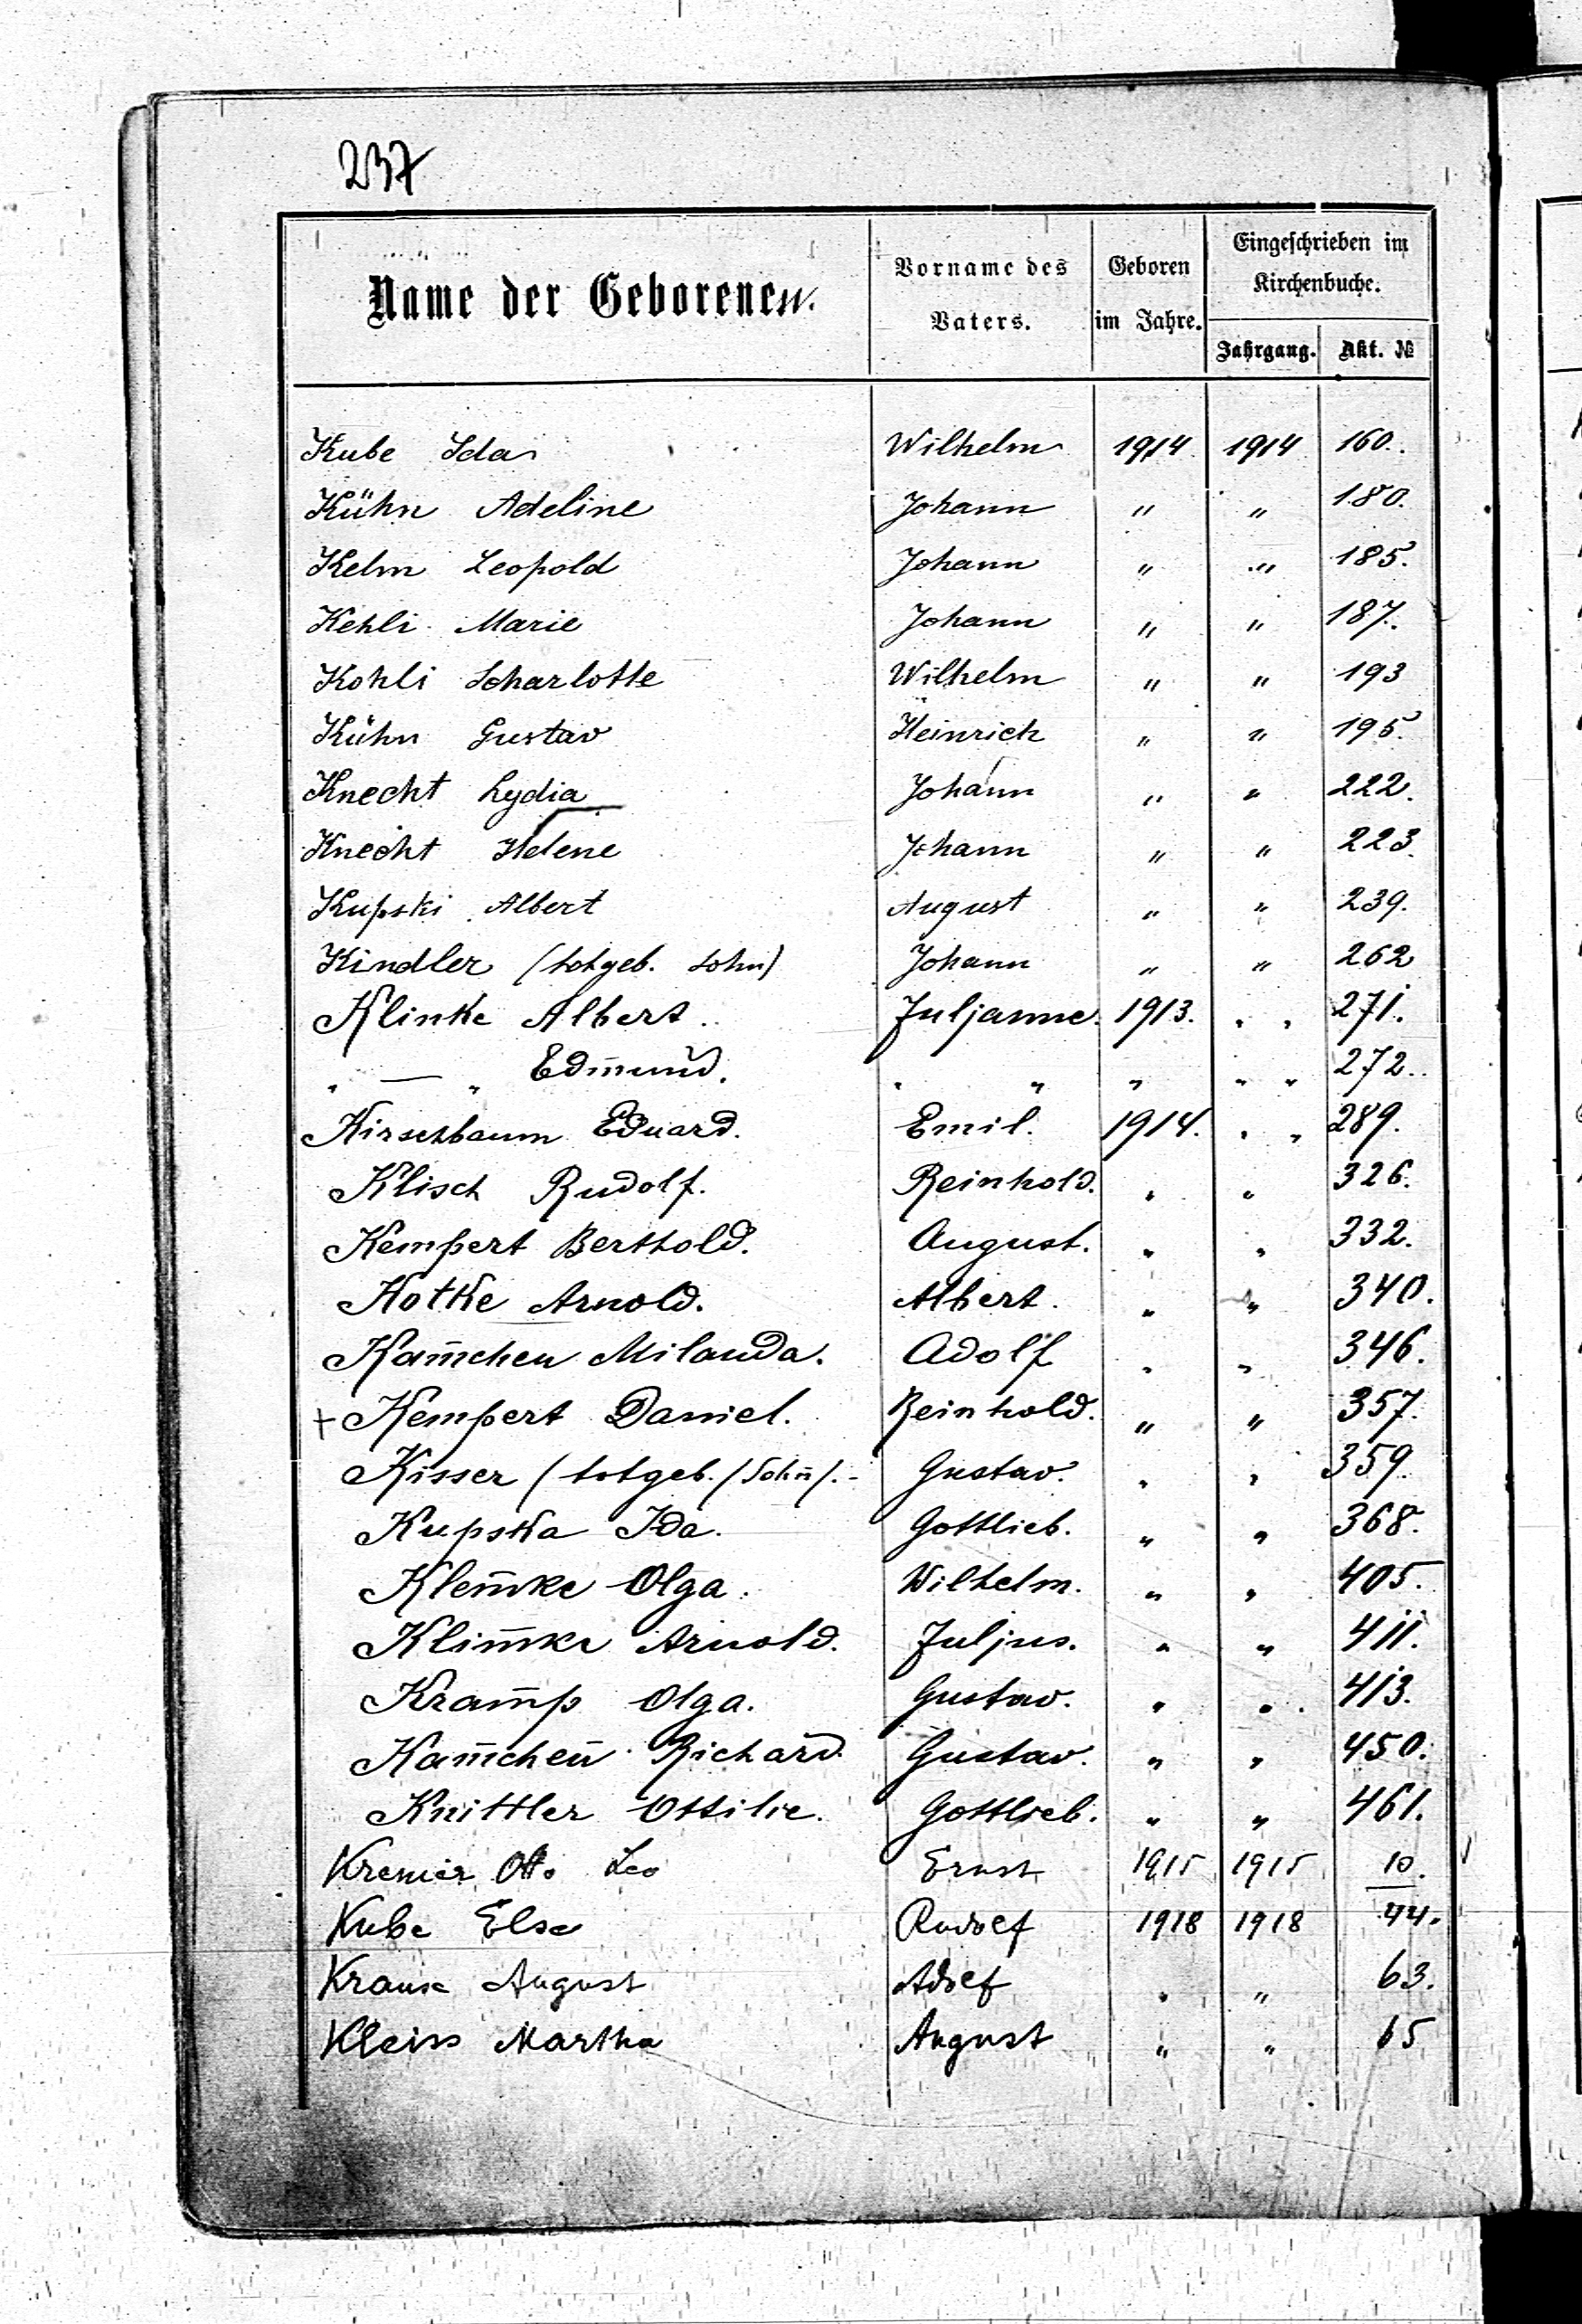 237
Name der Geborenen.
Vorname des Vaters.
Geboren im Jahre.
Eingeschrieben im Kirchenbuche.
Jahrgang. Akt. №
Kube Ida Wilhelm 1914 1914 160.
Kühn Adeline Johann " " 180.
Kelm Leopold Johann " " 185.
Kehli Marie Johann " " 187.
Kohli Scharlotte Wilhelm " " 193
Kühn Gustav Heinrich " " 195.
Knecht Lydia Johann " " 222.
Knecht Helene Johann " " 223.
Kupski Albert August " " 239.
Kindler (totgeb. Sohn) Johann " " 262
Klinke Albert. Juljanne. 1913. " " 271.
" — " Edm̄und. " " " " " 272.
Kirschbaum Eduard. Emil. 1914. " " 289.
Klisch Rudolf. Reinhold. " " 326.
Kempert Berthold. August. " " 332.
Kotke Arnold. Albert. " " 340.
Kam̄chen Milanda. Adolf " " 346.
+ Kempert Daniel. Reinhold. " " 357.
Kisser (totgeb. / Sohn̄/.- Gustav. " " 359.
Kupska Ida. Gottlieb. " " 368.
Klem̄ke Olga. Wilhelm. " " 405.
Klim̄ke Arnold. Juljus. " " 411.
Kram̄p Olga. Gustav. " " 413.
Kam̄chen̄ Richard. Gustav. " " 450.
Knittler Ottilie. Gottlieb. " " 461.
Kremer Otto Leo Ernst 1915 1915 10.
Kube Else Rudolf 1918 1918 44.
Krause August Adolf " " 63.
Kleiss Martha August " " 65